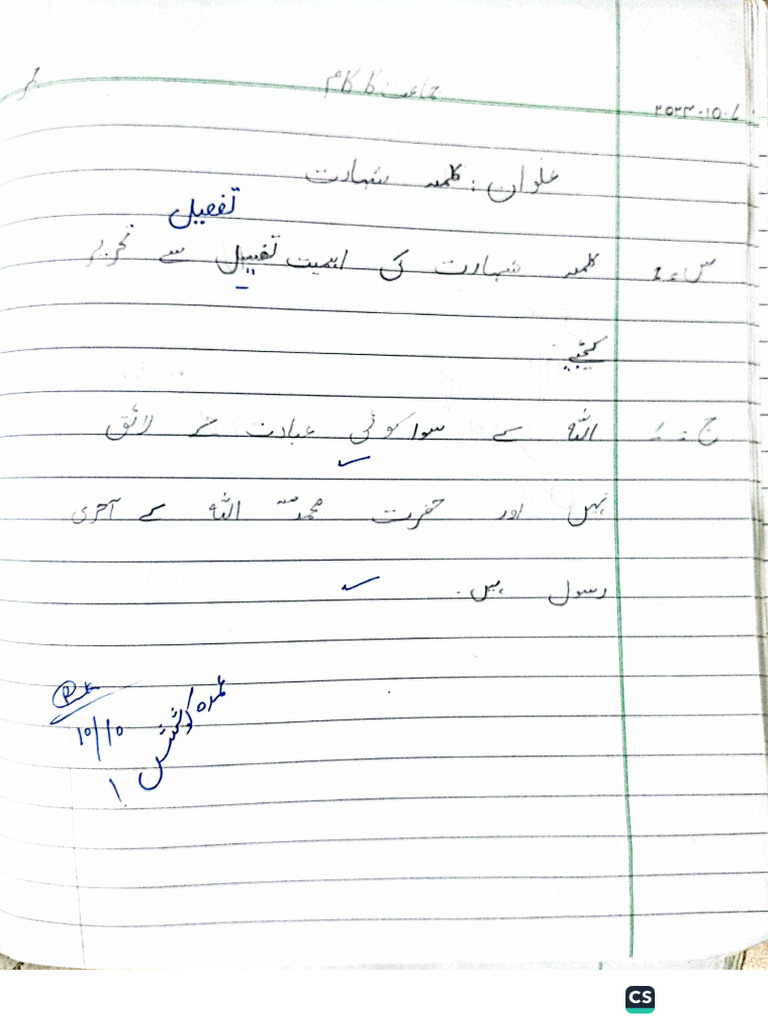 جماعت کا کام
عنوان: کلمہ شہادت
تفصیل
س-1 کلمہ شہادت کی اہمیت تفسیل سے تحریر
کیجیے
ج-1 اللہ کے سوا کوئی عبادت کے لائق
نہیں اور حضرت محمدؐ اللہ کے آخری
رسول ہیں.
عمدہ کوشش !
10/10
CS